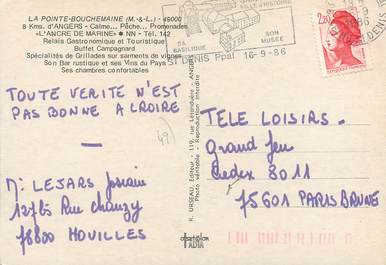 LA POINTE-BOUCHEMAINE (M.-&-L.) - 49000
8 Kms. d'ANGERS - Calme... Pêche... Promenades
«L'ANCRE DE MARINE» ✱ NN - Tél. 142
Relais Gastronomique et Touristique
Buffet Campagnard
Spécialités de Grillades sur sarments de vignes
Son Bar rustique et ses Vins du Pays
Ses chambres confortables
L'HISTOIRE
SA
BASILIQUE
SON
MUSEE
ST DENIS Ppal 16-9-86
2,20
TOUTE VERITE N'EST
PAS BONNE A CROIRE
49
M: LEJARS
Rue Chanzy
78800 HOUILLES
R. URSEAU, Editeur - 119, rue Létanduère - ANGERS
Photo véritable - Reproduction interdite
TELE LOISIRS.
Grand Jeu
Cedex 3011
75601 PARIS BRUNE